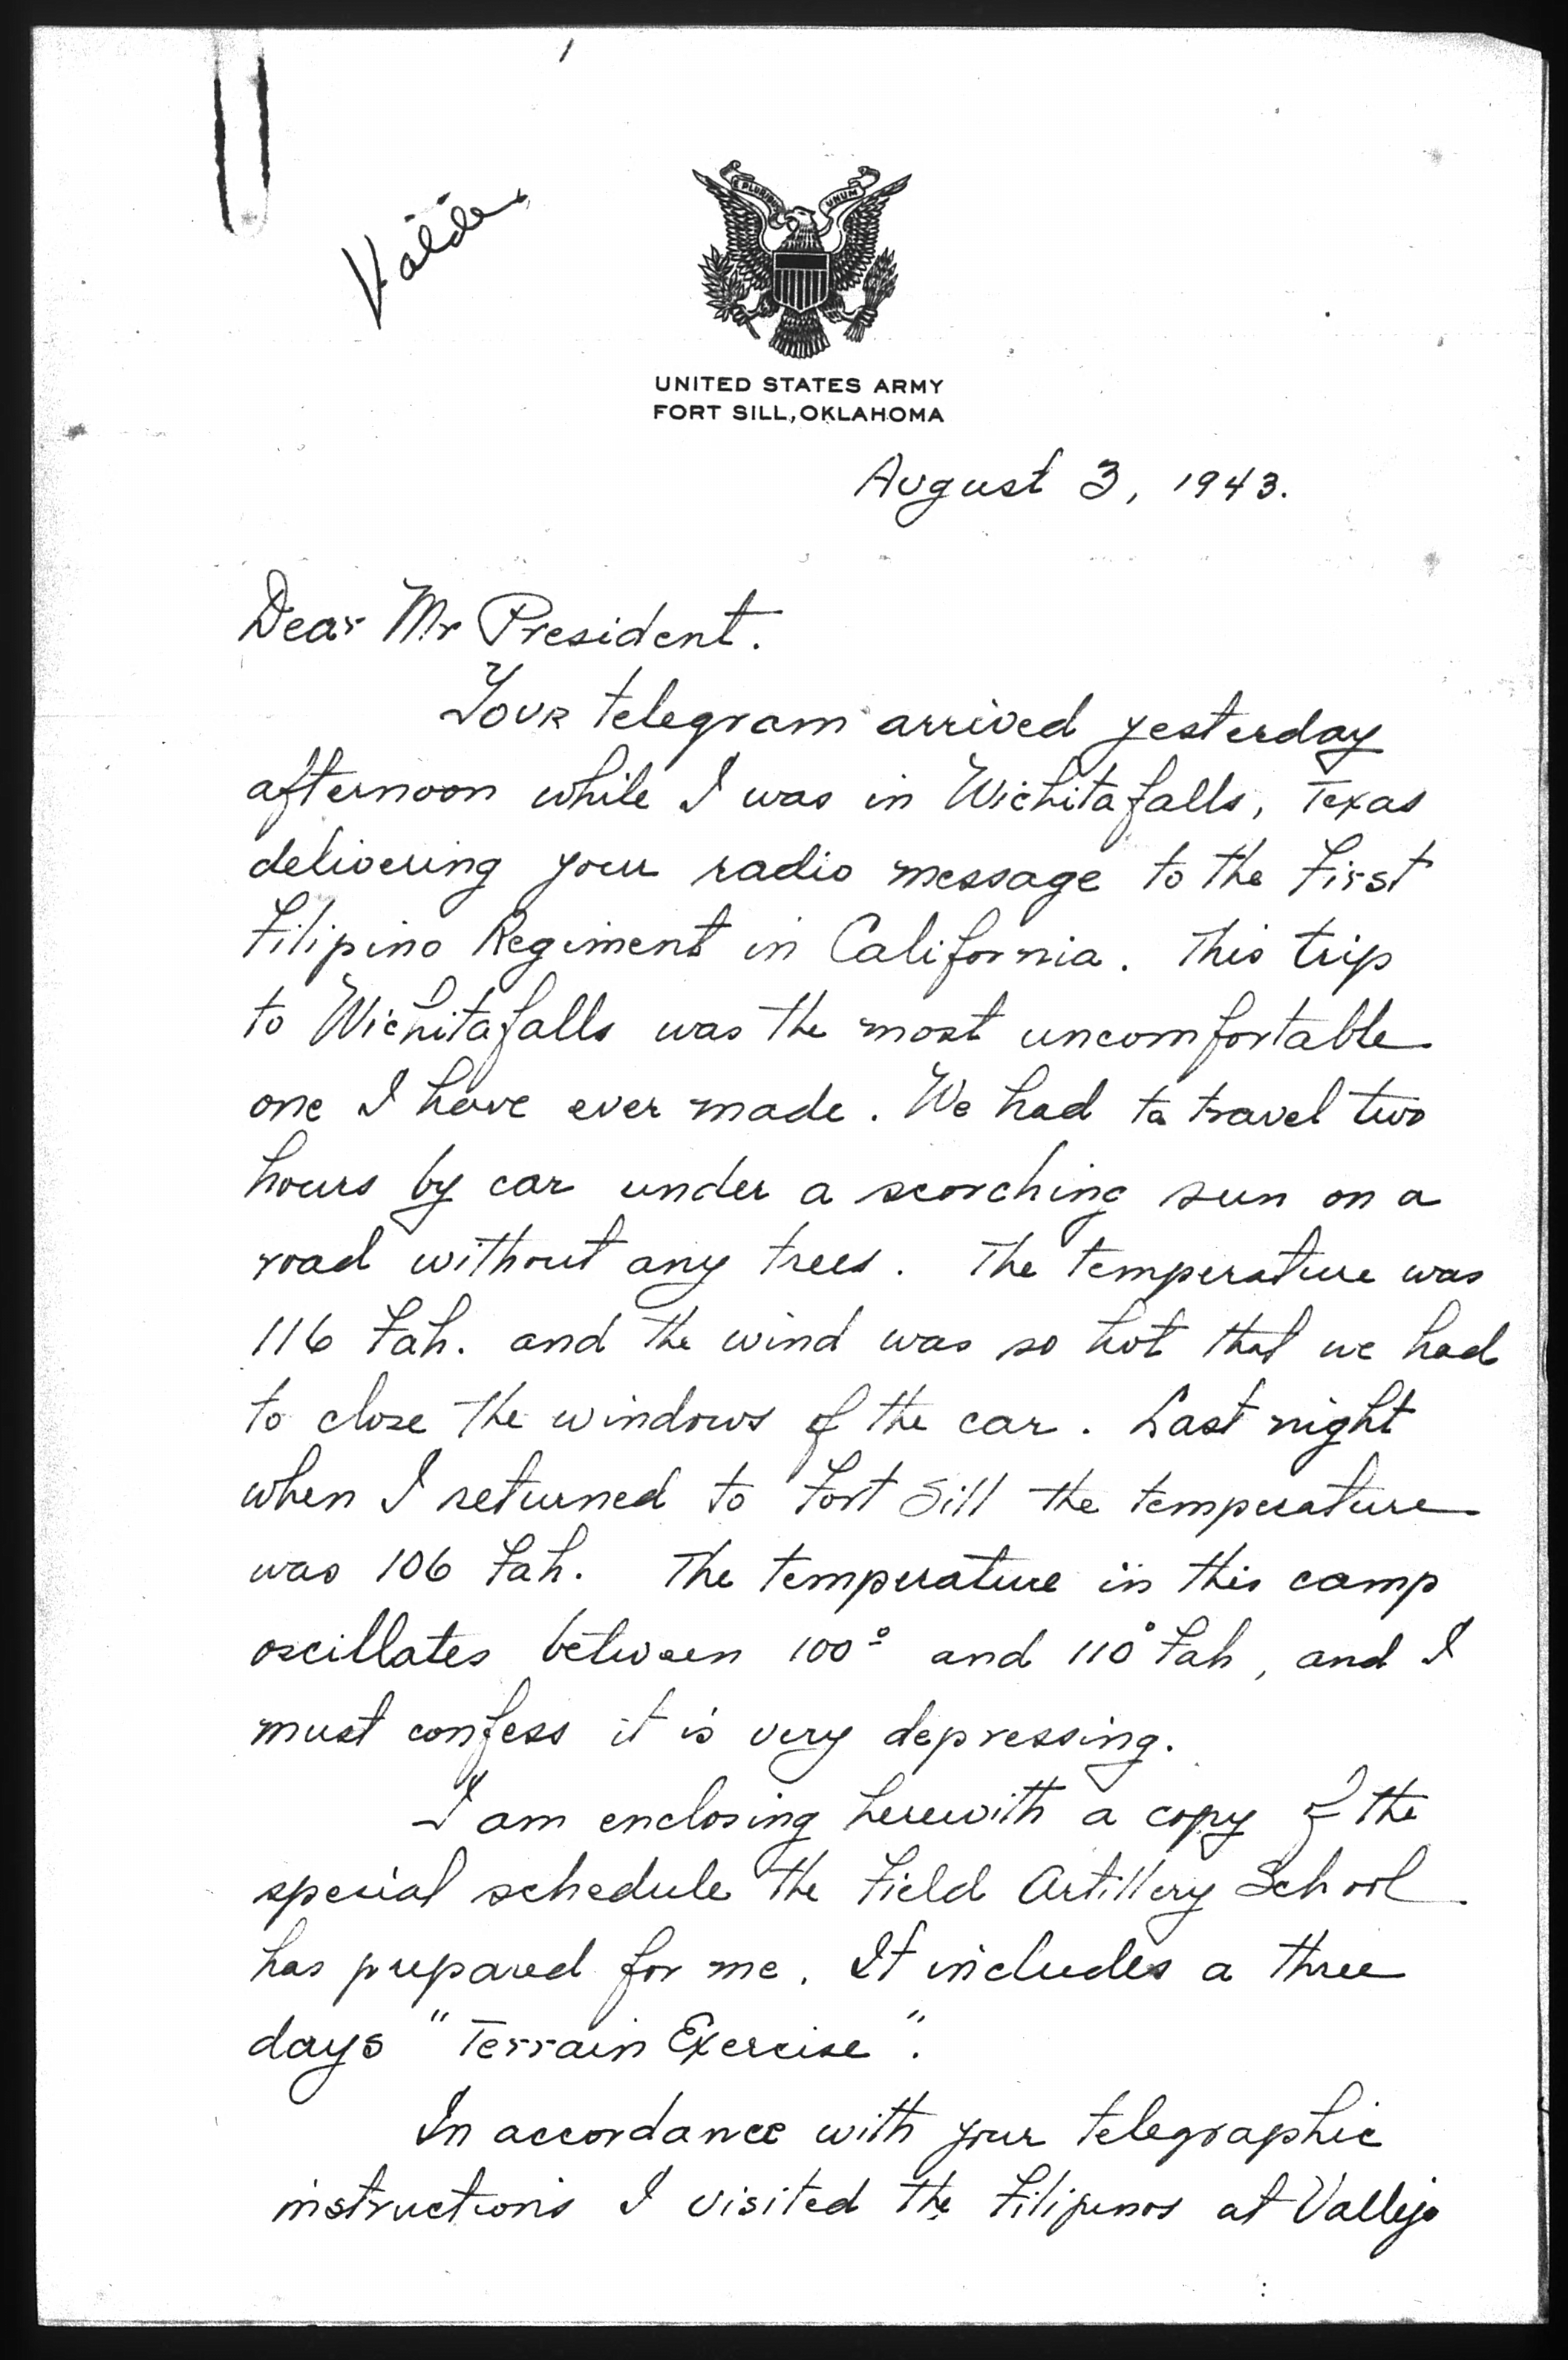 1
Valdes
E PLURIBUS UNUM
UNITED STATES ARMY
FORT SILL, OKLAHOMA
August 3, 1943.
Dear Mr President.
Your telegram arrived yesterday
afternoon while I was in Wichitafalls, Texas
delivering your radio message to the First
Filipino Regiment in California. This trip
to Wichitafalls was the most uncomfortable
one I have ever made. We had to travel two
hours by car under a scorching sun on a
road without any trees. The temperature was
116 Fah. and the wind was so hot that we had
to close the windows of the car. Last night
when I returned to Fort Sill the temperature
was 106 Fah. The temperature in this camp
oscillates between 100° and 110° Fah, and I
must confess it is very depressing.
I am enclosing herewith a copy of the
special schedule the Field Artillery School
has prepared for me. It includes a three
days "Terrain Exercise".
In accordance with your telegraphic
instructions I visited the Filipinos at Vallejo